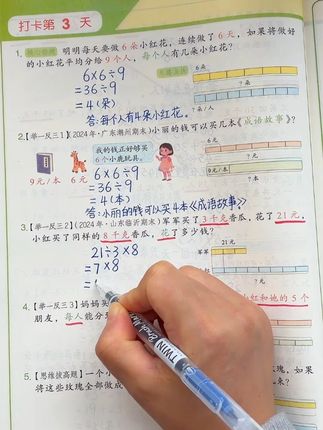 打卡第 3 天
1. 明明每天要做 6 朵小红花，连续做了 6 天，如果将做好
的小红花平均分给 9 个人，每个人有几朵小红花？
6×6÷9
=36÷9
=4(朵)
答:每个人有4朵小红花。
？朵
2.【举一反三1】（2024年·广东潮州期末）小丽的钱可以买几本《成语故事》？
我的钱正好够买
6 个小鹿玩具。
9 元/本
6 元/个
6×6÷9
=36÷9
=4(本)
答:小丽的钱可以买4本《成语故事》
？元
9元/本
？本
3.【举一反三2】（2024年·山东临沂期末）军军买了 3 千克香瓜，花了 21 元，
小红买了同样的 8 千克香瓜，花了多少钱？
21÷3×8
=7×8
=
21元
军军
？元
4.【举一反三3】妈妈买
和他的 5 个
朋友，每人能分
5.【思维拔高题】一个小
将这些玫瑰全部做成